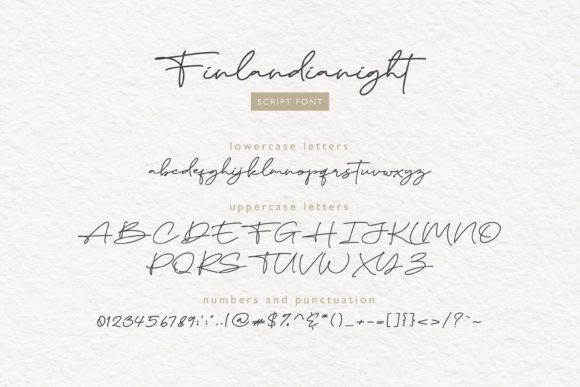 Finlandianight
SCRIPT FONT
lowercase letters
abcdefghijklmnopqrstuvwxyz
uppercase letters
ABCDEFGHIJKLMNO
PQRSTUVWXYZ
numbers and punctuation
0123456789;':",.|@#$%^&*()_+-=[]{}<>/?`~